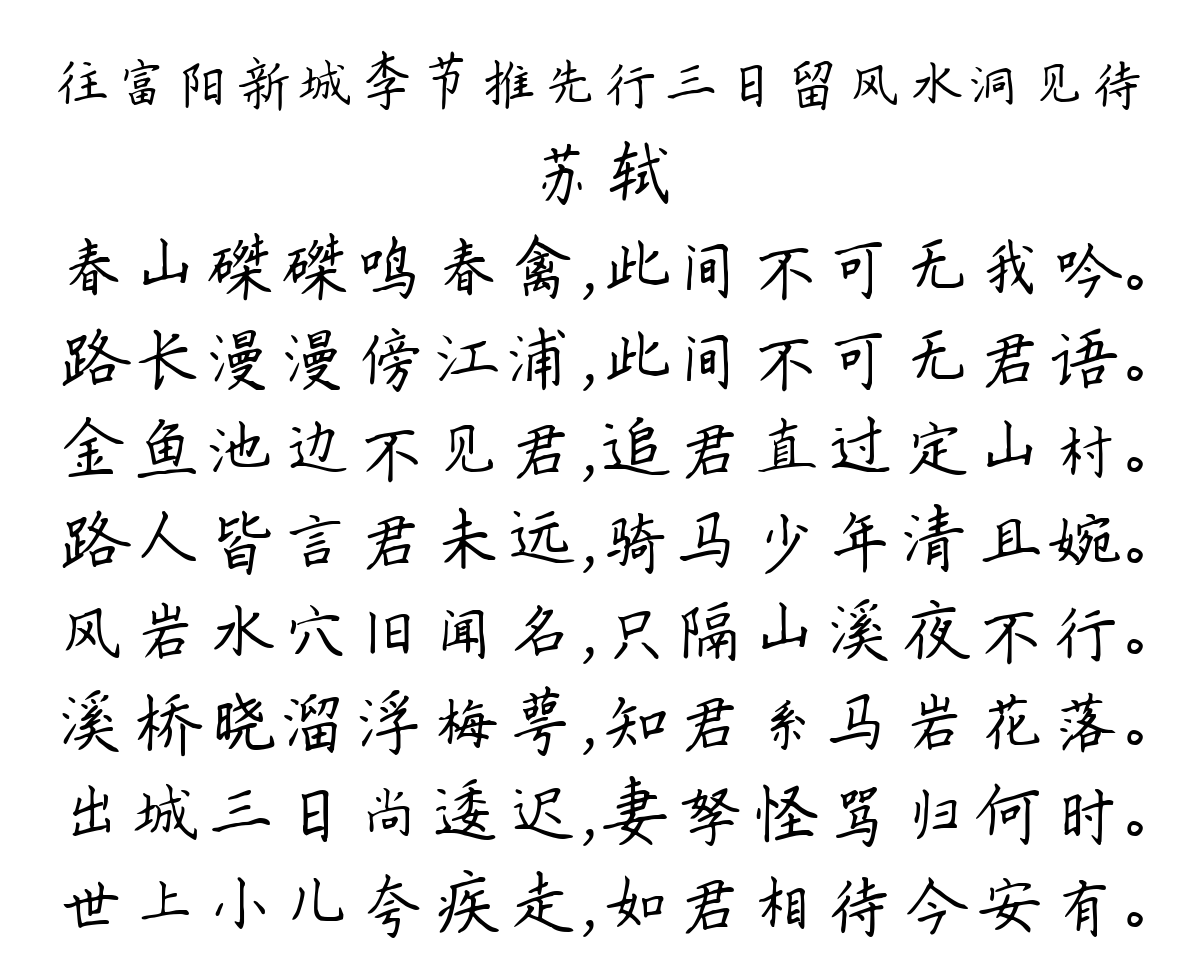 往富阳新城李节推先行三日留风水洞见待
苏轼
春山磔磔鸣春禽,此间不可无我吟。
路长漫漫傍江浦,此间不可无君语。
金鱼池边不见君,追君直过定山村。
路人皆言君未远,骑马少年清且婉。
风岩水穴旧闻名,只隔山溪夜不行。
溪桥晓溜浮梅萼,知君系马岩花落。
出城三日尚逶迟,妻孥怪骂归何时。
世上小儿夸疾走,如君相待今安有。